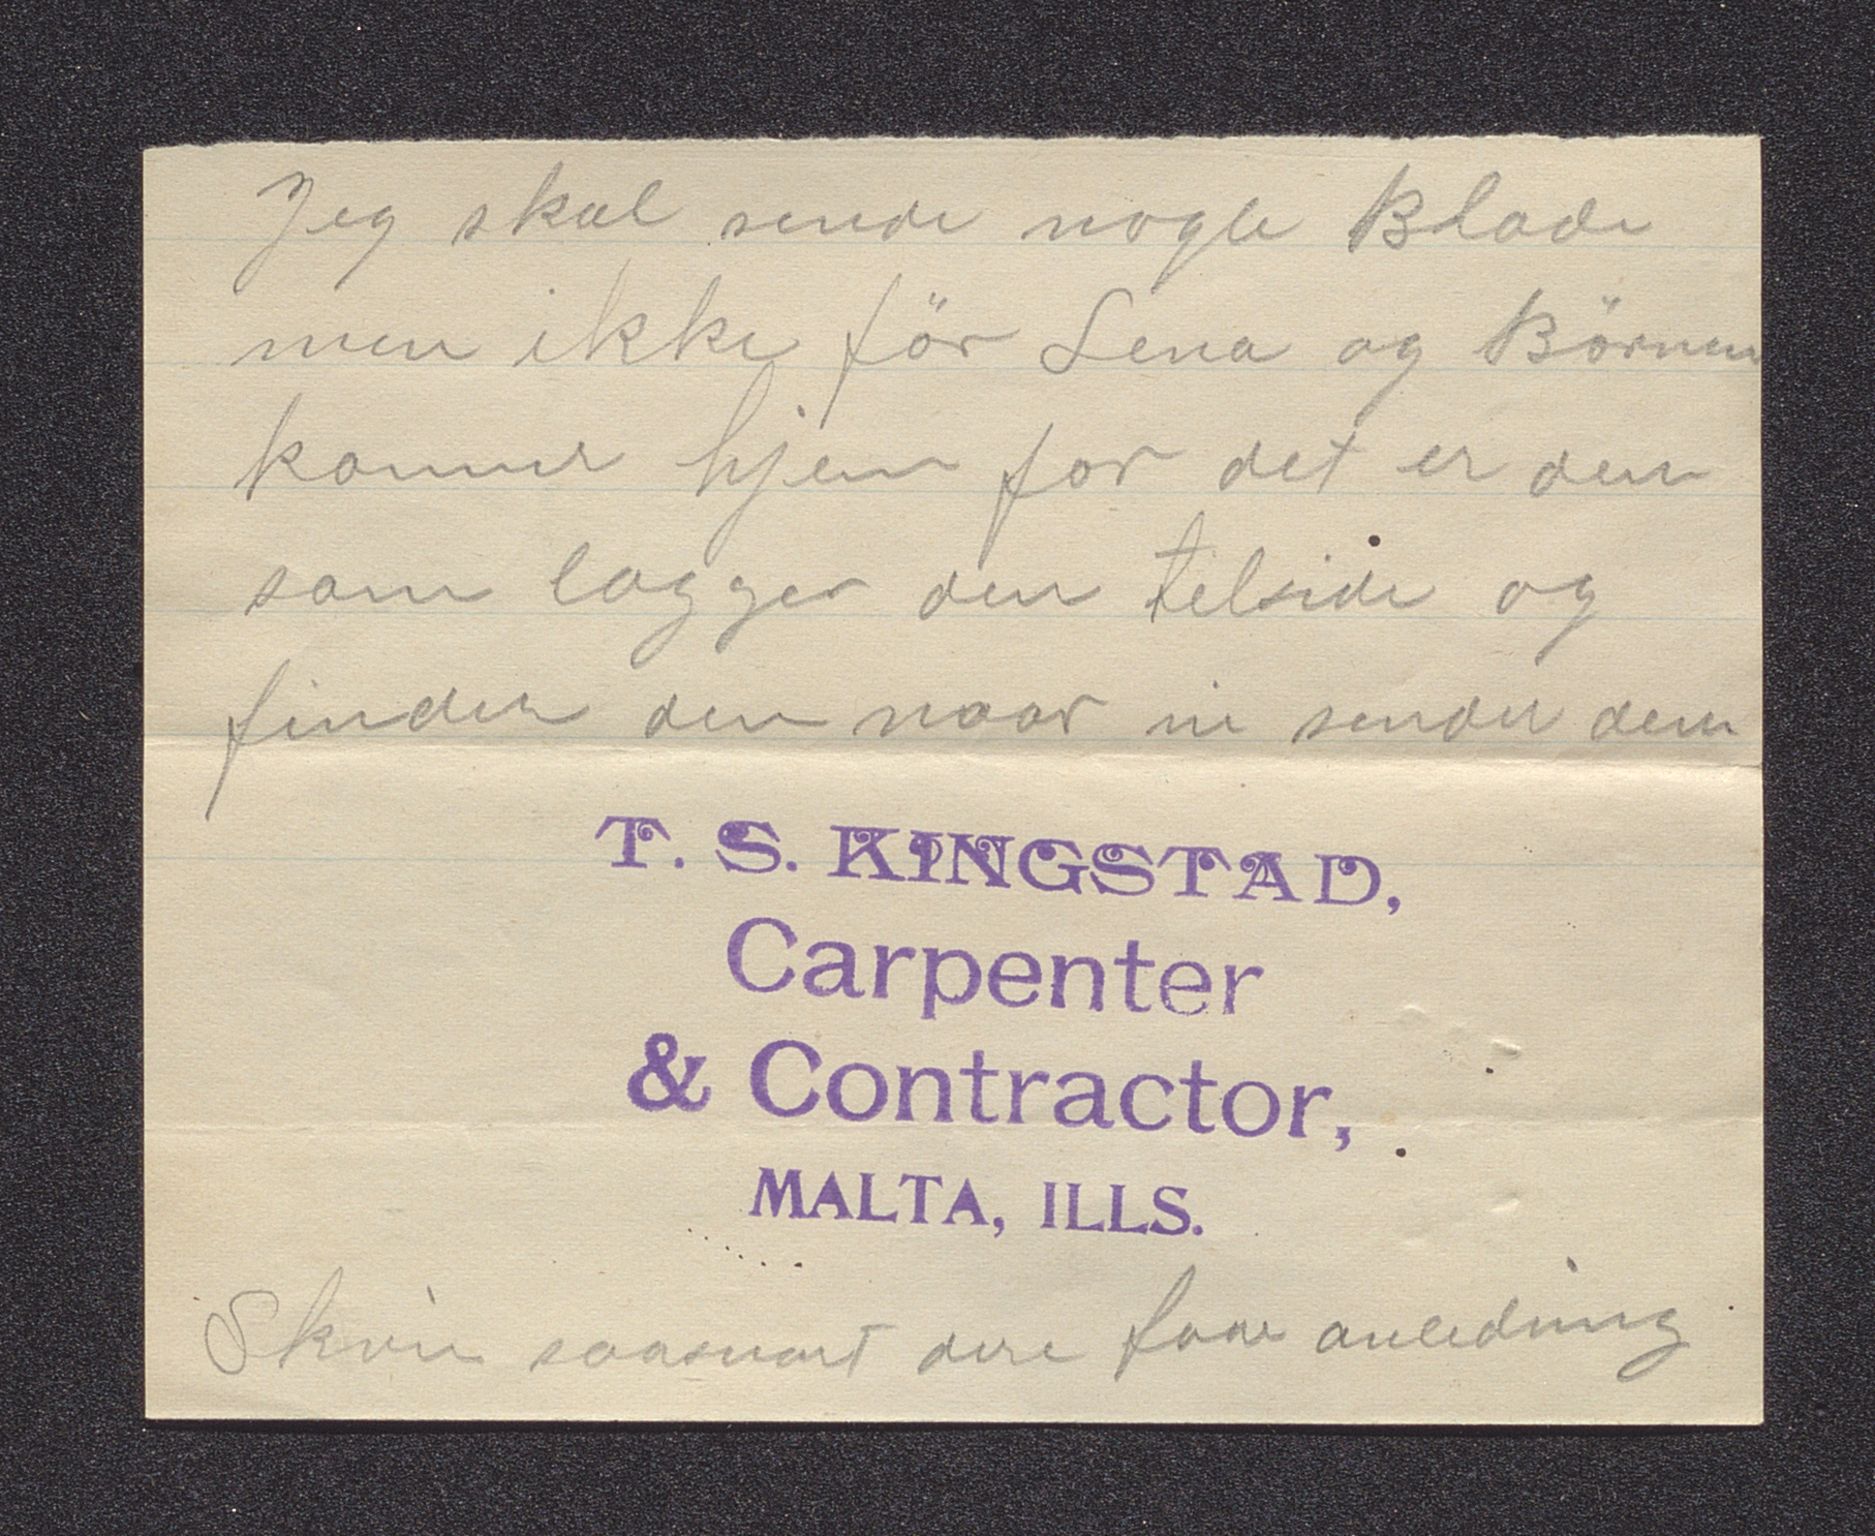 Jeg skal sende nogle Blade
men ikke för Lena og Börnen
kommer hjem for det er dem
som lagger dem telside og
finder dem naar vi sender dem
T. S. KINGSTAD,
Carpenter
& Contractor,
MALTA, ILLS.
Skriv saasnart dere faar anledning